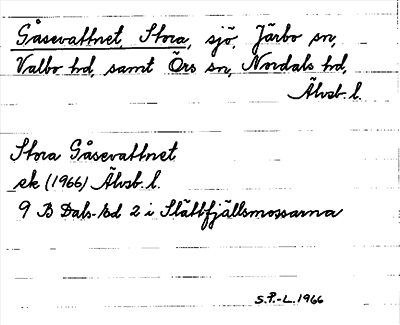 Gåsevattnet, Stora, sjö, Järbo sn,
Valbo hd, samt Örs sn, Nordals hd,
Älvsb. l.
Stora Gåsevattnet
ek (1966) Älvsb. l.
9 B Dals-Ed 2 i Slättfjällsmossarna
S.P.-L. 1966